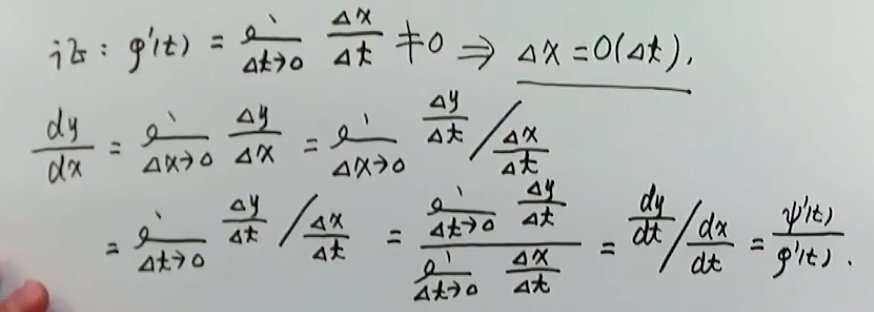 证: φ'(t) = lim Δt→0 Δx/Δt ≠ 0 ⇒ Δx = O(Δt).
dy/dx = lim Δx→0 Δy/Δx = lim Δx→0 Δy/Δt / Δx/Δt
= lim Δt→0 Δy/Δt / Δx/Δt = lim Δt→0 Δy/Δt / lim Δt→0 Δx/Δt = dy/dt / dx/dt = ψ'(t)/φ'(t).